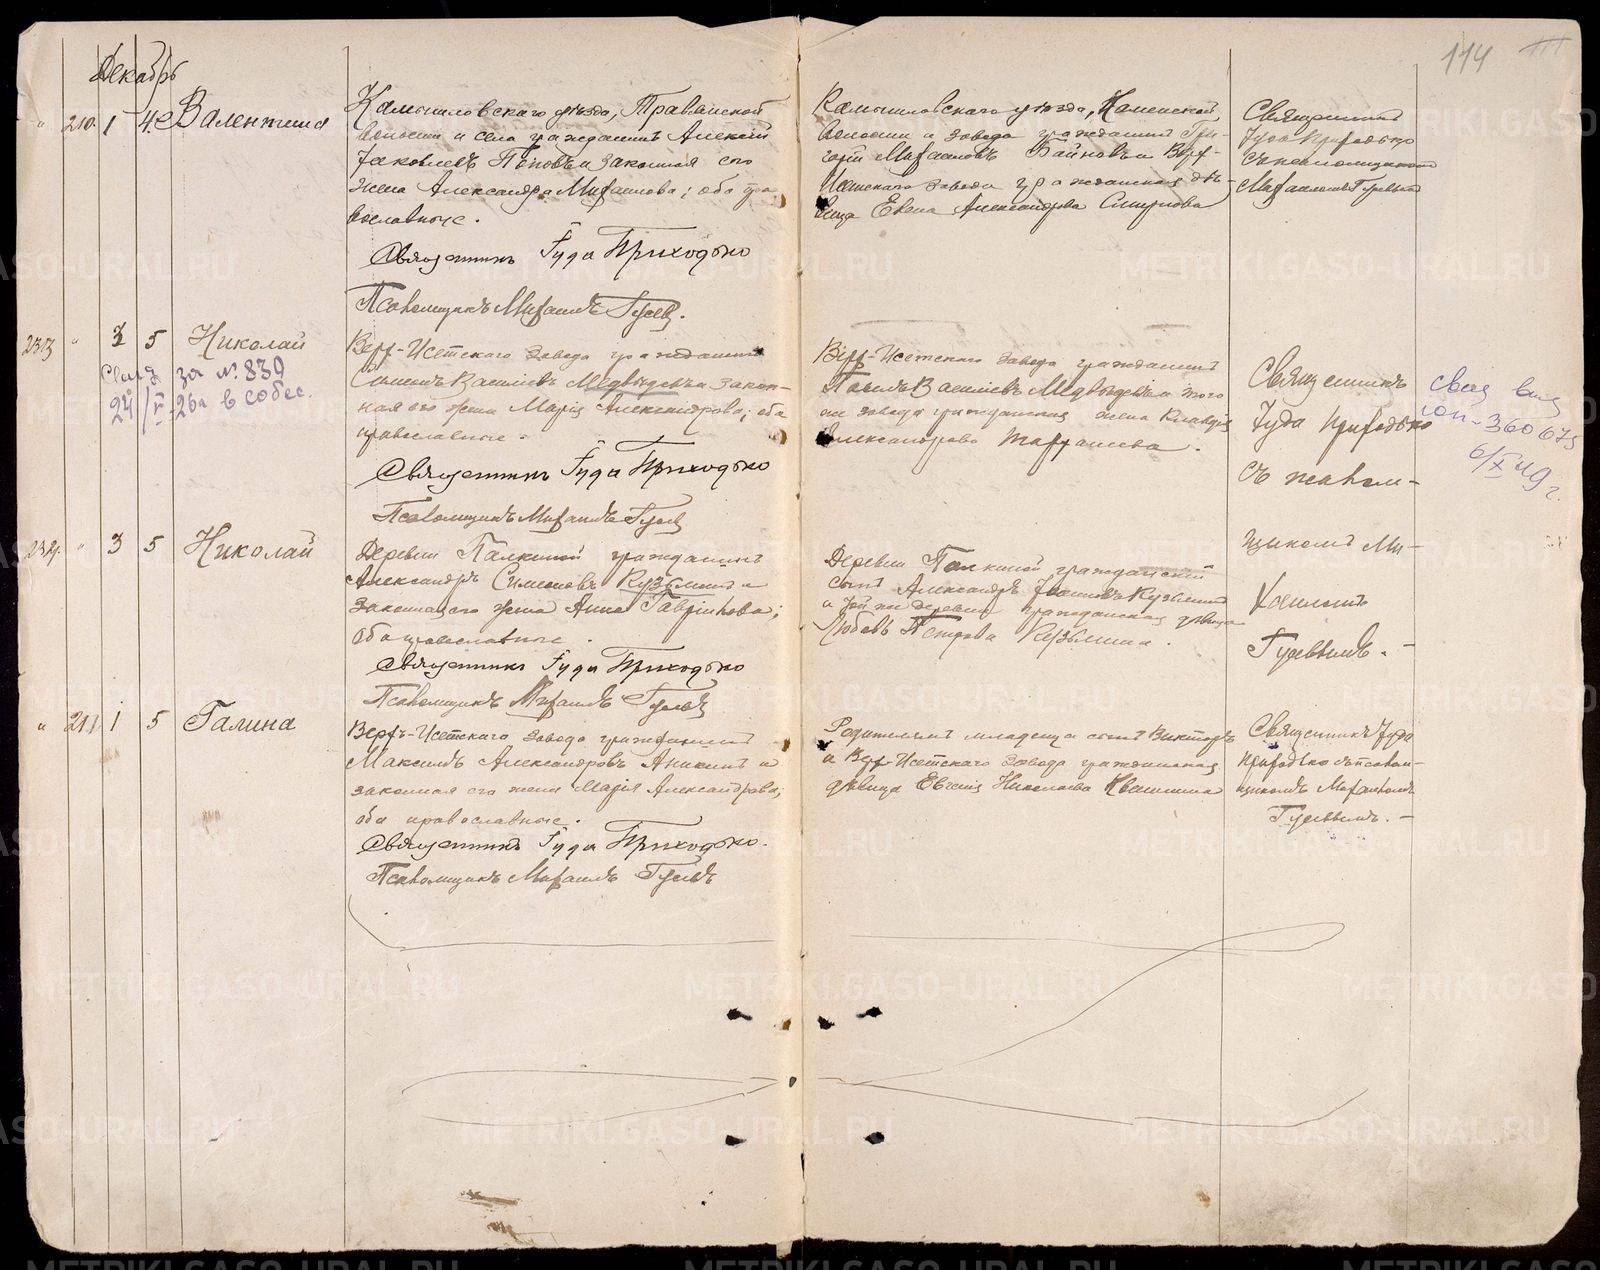 114
Декабрь
" 210. 1 4 Валентина
Камышловскаго уѣзда, Травянской
волости и села гражданинъ Алексѣй
Яковлевъ Поповъ и законная его
жена Александра Михаилова; оба пра-
вославные.
Священникъ Іуда Приходько
Псаломщикъ Михаилъ Гусевъ.
Камышловскаго уѣзда, Каменской
волости и завода гражданинъ Гри-
горій Михаиловъ Байновъ и Верх-
Исетскаго завода гражданская дѣ-
вица Елена Александрова Смирнова
Священникъ
Іуда Приходько
съ псаломщикомъ
Михаиломъ Гусевымъ
233 " 3 5 Николай
24/V-26г в собес.
за № 839
Верх-Исетскаго завода гражданинъ
Симеонъ Василіевъ Медвѣдевъ и закон-
ная его жена Марія Александрова; оба
православные.
Священникъ Іуда Приходько
Псаломщикъ Михаилъ Гусевъ
Верх-Исетскаго завода гражданинъ
Павелъ Василіевъ Медвѣдевъ и того
же завода гражданская жена Клавдія
Александрова
Священникъ
Іуда Приходько
съ псалом-
щикомъ Ми-
хаиломъ
Гусевымъ. -
360675
6/X 49 г.
234. " 3 5 Николай
Деревни Палкиной гражданинъ
Александръ Симеоновъ Кузьминъ и
законная его жена Анна Гавріилова;
оба православные.
Священникъ Іуда Приходько
Псаломщикъ Михаилъ Гусевъ
Деревни Палкиной гражданскій
сынъ Александръ Іоанновъ Кузьминъ
и той же деревни гражданская дѣвица
Любовь Петрова Кузьмина.
" 211 1 5 Галина
Верхъ-Исетскаго завода гражданинъ
Максимъ Александровъ Аникинъ и
законная его жена Марія Александрова;
оба православные.
Священникъ Іуда Приходько.
Псаломщикъ Михаилъ Гусевъ
Родителемъ младенца сынъ Викторъ
и Верх-Исетскаго завода гражданская
дѣвица Евгенія Николаева Квашнина
Священникъ Іуда
Приходько съ псалом-
щикомъ Михаиломъ
Гусевымъ. -